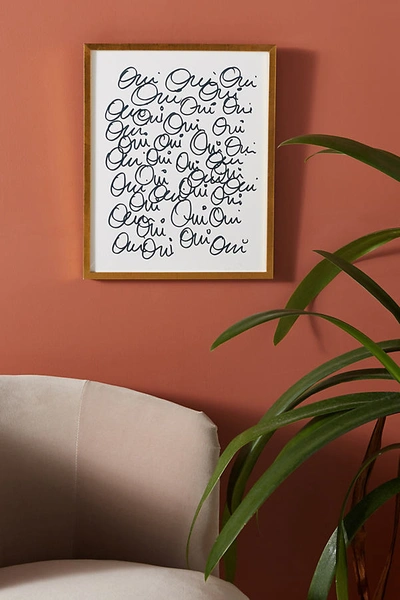 Oui Oui Oui
Oui Oui
Oui Oui Oui
Oui Oui Oui Oui
Oui Oui Oui Oui
Oui Oui Oui Oui
Oui Oui Oui Oui
Oui Oui Oui Oui
Oui Oui Oui
Oui Oui Oui Oui
Oui Oui Oui Oui